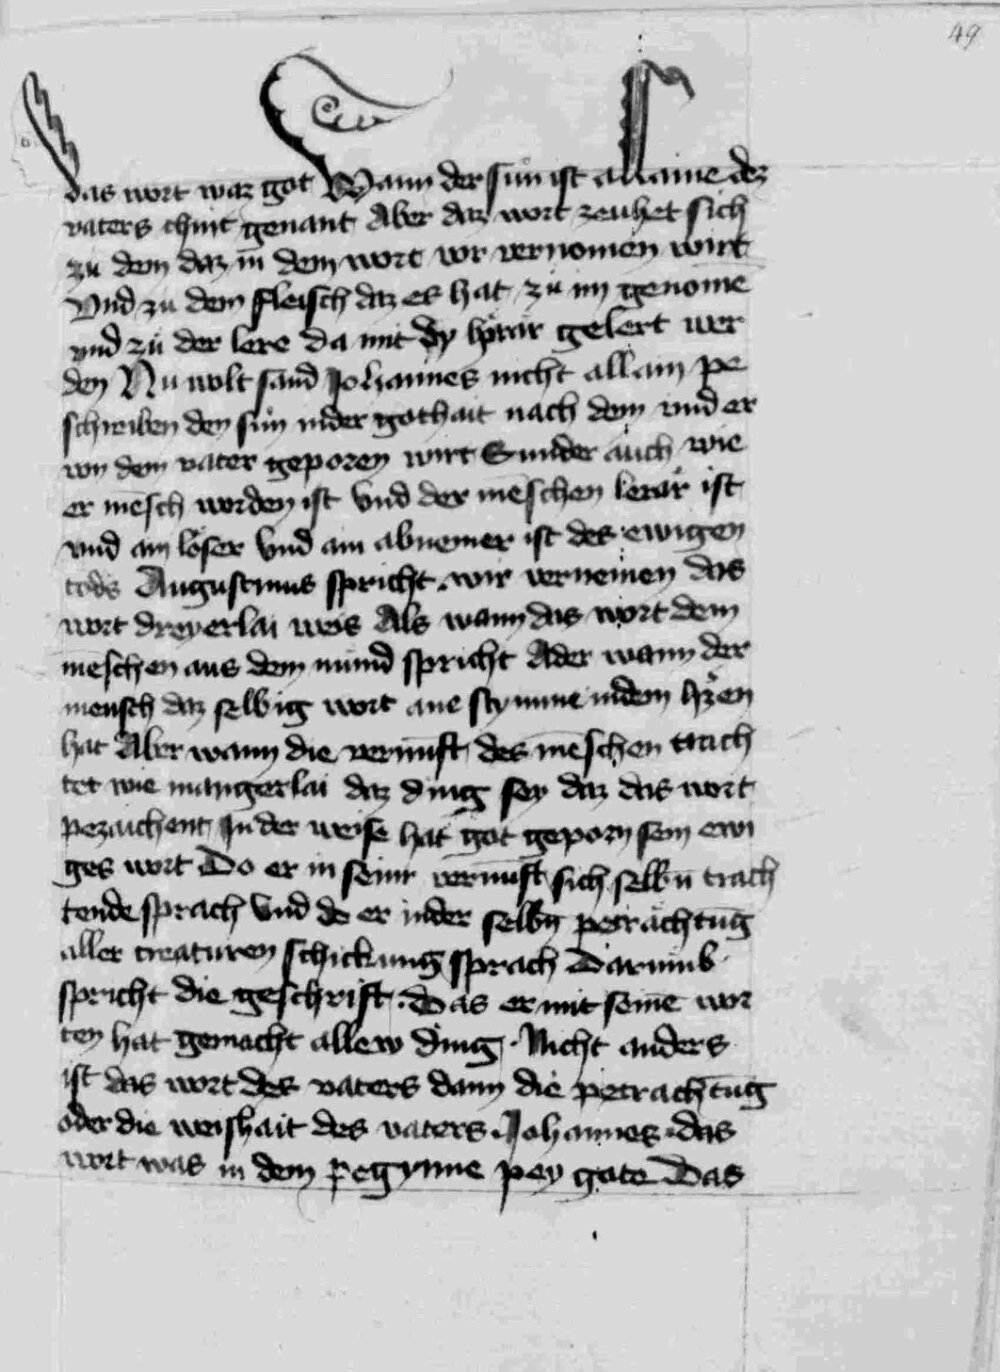 49
das wort waz got Wann der sun ist allaine dez
vaters chint genant Aber daz wort zeuhet sich
zu dem daz in dem wort wir vernomen wirt
Vnd zu dem fleisch daz es hat zu im genome
vnd zu der lere da mit dy hörär gelert wer
den Nu wolt sand Johannes nicht allain pe
schreiben den sun inder gothait nach dem vnd er
von dem vater geporen wirt Sunder auch wie
er mēsch worden ist Vnd der mēschen lerär ist
vnd ain löser Vnd ain abnemer ist des ewigen
tods Augustinus spricht wir vernemen das
wort dreyerlai weis Als wann das wort dem
mēschen aus dem mund spricht Ader wann der
mensch daz selbig wort ane stymme indem hʾzen
hat Aber wann die vernūft des mēschen trach
tet wie mangerlai daz ding sey daz das wort
pezaichent In der weise hat got geporn sein ewi
ges wort Do er in seinr vernūft sich selbn trach
tende sprach Vnd do er inder selbn peträchtūg
aller creaturen schickung sprach Darumb
spricht die geschrift Das er mit seinē wor
ten hat gemacht allew ding Nicht anders
ist das wort des vaters dann die petrachtūg
oder die weishait des vaters Johannes das
wort was in dem pegynne pey gote Das